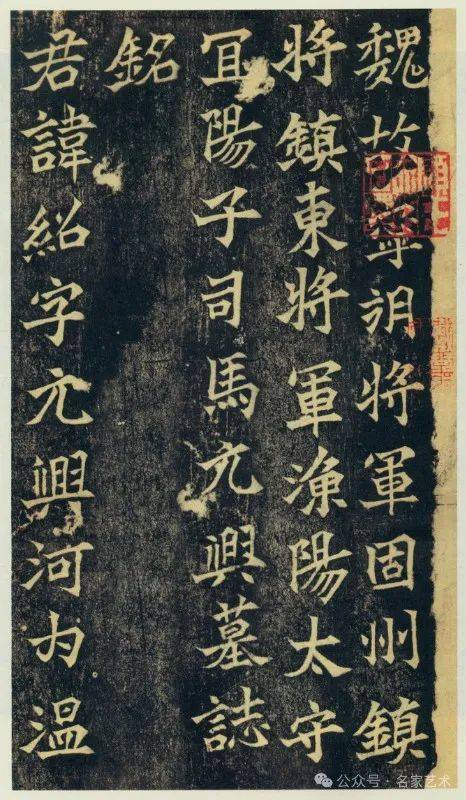 魏故寧朔將軍固州鎮
將鎮東將軍漁陽太守
宜陽子司馬元興墓誌
銘
君諱紹字元興河內溫
公众号·名家艺术